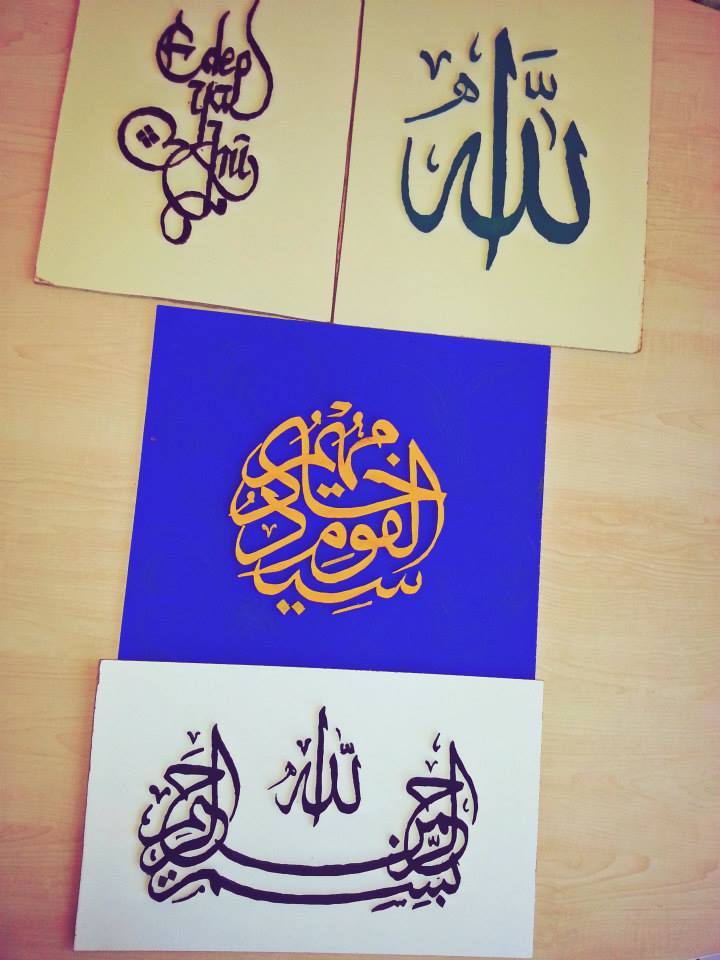 Edep
ya
Hû
الله
سيد القوم خادمهم
بسم الله الرحمن الرحيم